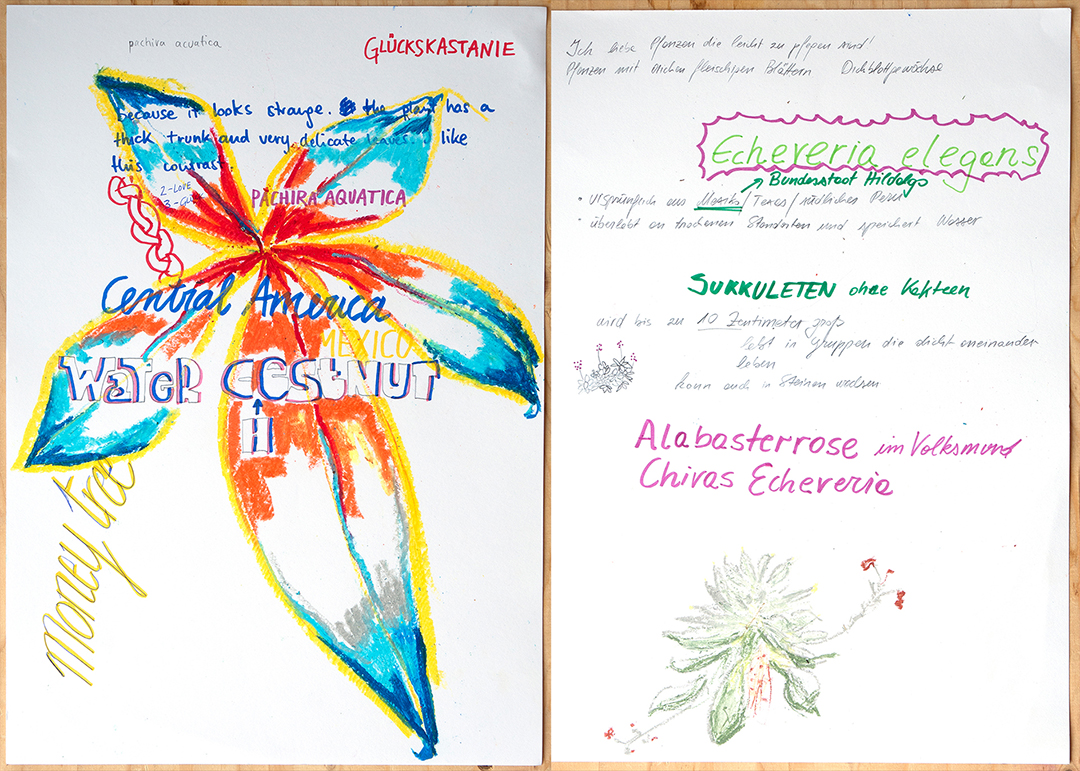 pachira acuatica
GLÜCKSKASTANIE
because it looks strange. the plant has a
thick trunk and very delicate leaves. I like
this contrast.
2-LOVE
PACHIRA AQUATICA
Central America
MEXICO
WATER CESTNUT
H
Money tree
Ich liebe Pflanzen die leicht zu pflegen sind!
Pflanzen mit dicken fleischigen Blättern Dickblattgewächse
Echeveria elegans
Bundesstaat Hidalgo
• ursprünglich aus Mexiko / Texas / südliches Peru
• überlebt an trockenen Standorten und speichert Wasser
SUKKULETEN ohne Kakteen
wird bis zu 10 Zentimeter groß
lebt in Gruppen die dicht aneinander
leben
kann auch in Steinen wachsen
Alabasterrose im Volksmund
Chivas Echeveria